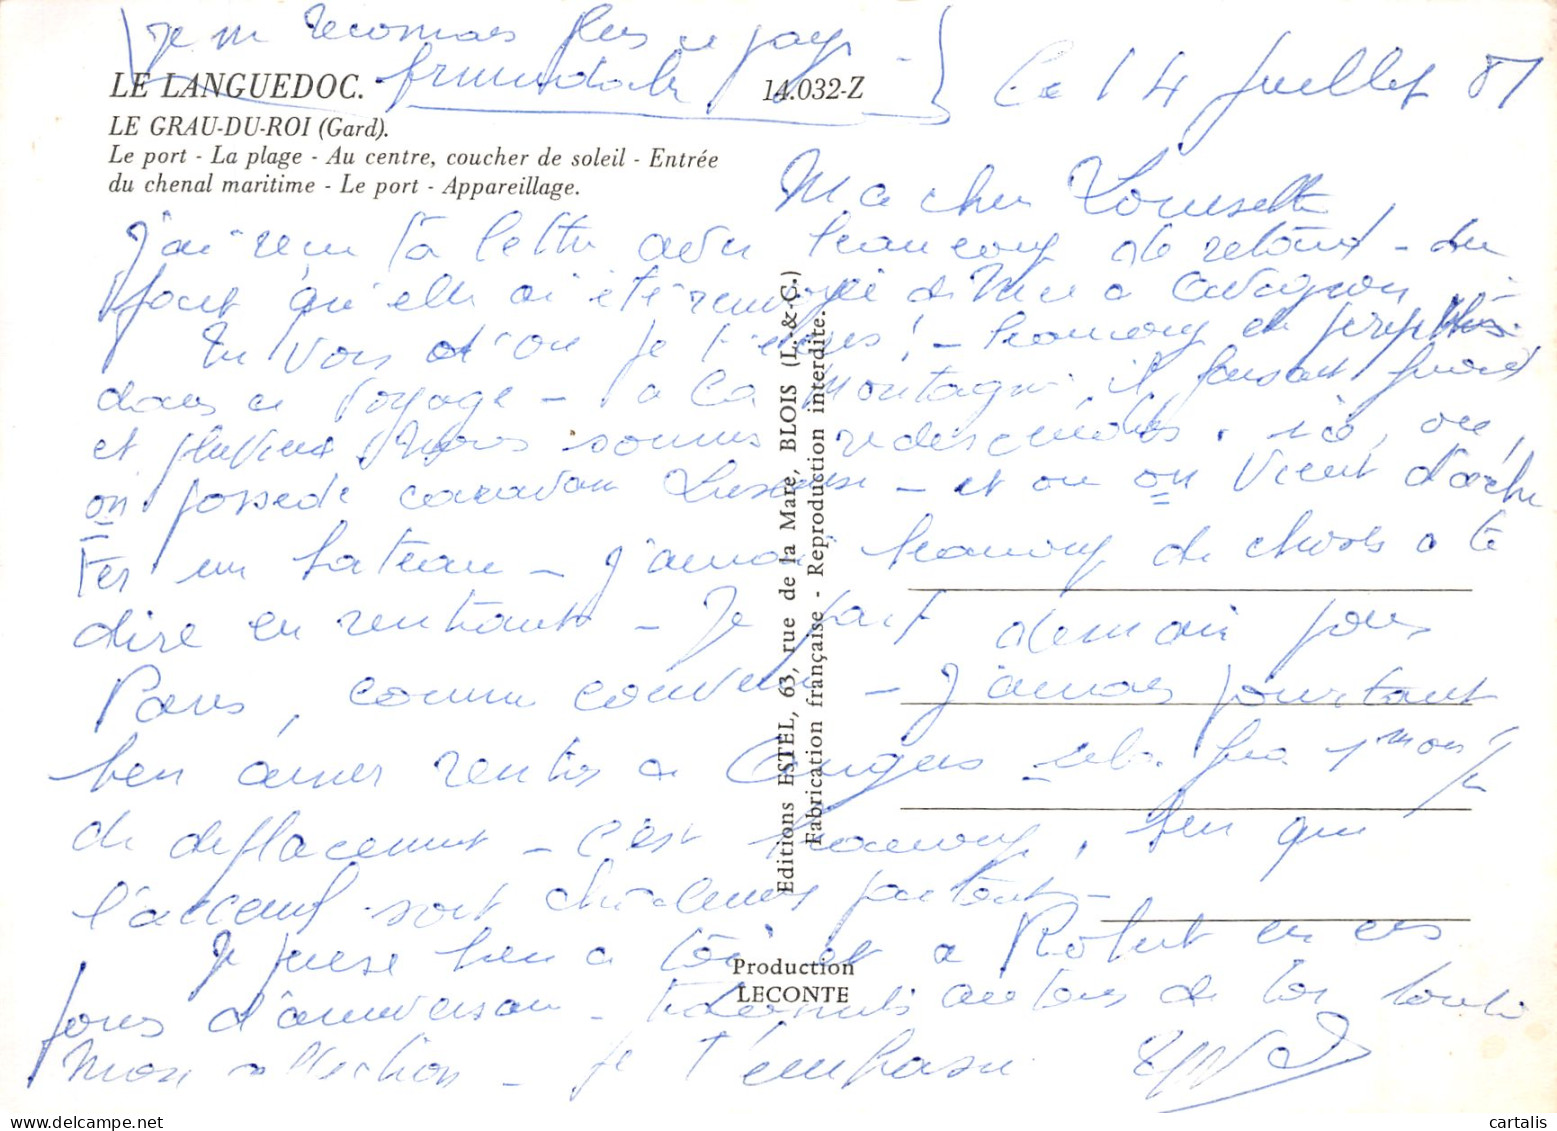 je ne reconnais plus ce pays
LE LANGUEDOC.
14.032-Z
Le 14 Juillet 81
LE GRAU-DU-ROI (Gard).
Le port - La plage - Au centre, coucher de soleil - Entrée
du chenal maritime - Le port - Appareillage.
Ma chère Louisette
J'ai reçu ta lettre avec beaucoup de retard - du
fait qu'elle ai été renvoyée de Nice a Avignon
Tu vois d'où je t'écris ! - beaucoup de
dans ce voyage - a la Montagne il faisait froid
et pluvieux nous sommes redescendus. ici, où,
on possède caravane - et où on vient d'acheter
un bateau - J'aurai beaucoup de choses a te
dire en rentrant - Je part demain pour
Paris, comme convenu - J'aimerais pourtant
bien aimer rentrer a Angers - cela fera 1 mois 1/2
de déplacement - c'est beaucoup, bien que
l'acceuil soit chaleureux partout -
Je pense bien a toi et a Robert en ces
jours d'anniversaire - autour de toi toute
mon affection - Je t'embrasse
Editions ESTEL, 63, rue de la Mare, BLOIS (L.-&-C.)
Fabrication française - Reproduction interdite.
Production
LECONTE
cartalis